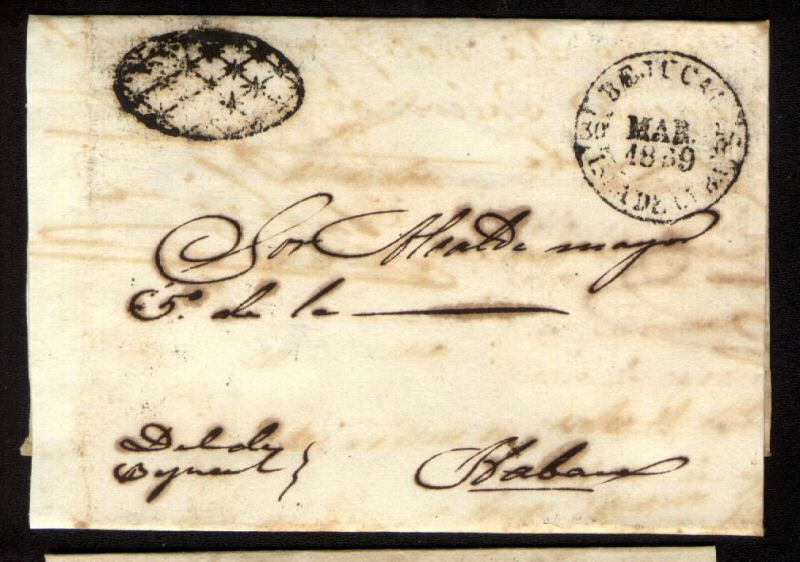 BEJUCAL
30 MAR.
1859
ISLA DE CUBA
Sor Alcalde mayor
5º de la
Del de
Bejucal
Habana